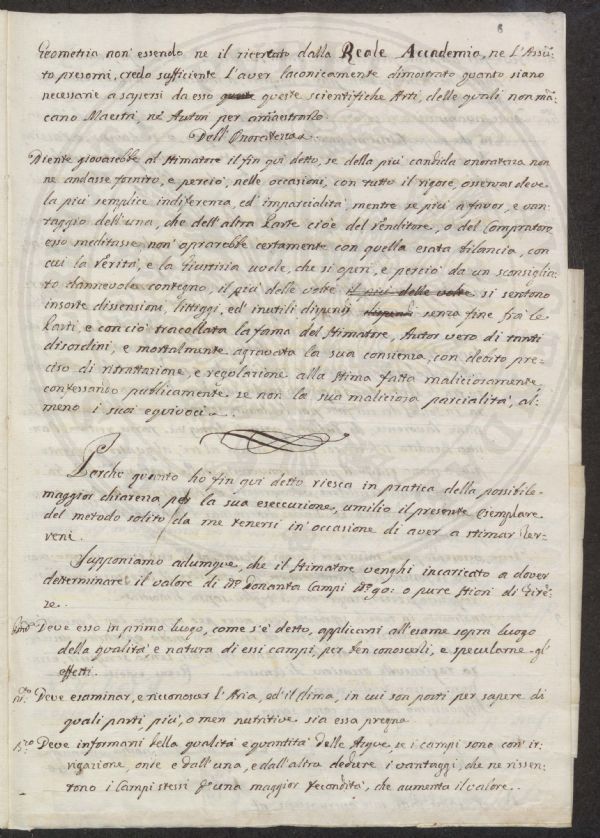 8
Geometria non' essendo ne il ricercato dalla Reale Accademia, ne L'Assũ-
to presomi, credo sufficiente l'aver laconicamente dimostrato quanto siano
necessarie a sapersi da esso queste queste scientifiche Arti, delle quali non mã-
cano Maestri, ne' Autori per amaestrarlo
Dell' Onoratezza.
Niente giovarebbe al Stimatore il fin qui detto, se della più candida onoratezza non
ne andasse fornito, e perciò, nelle occasioni, con tutto il rigore, osservar deve
la più semplice indiferenza, ed' imparcialità, mentre se più a favor, e van-
taggio dell'una, che dell'altra Parte cioè del Venditore, o del Compratore
esso meditasse, non' oprarebbe certamente con quella esata bilancia, con
cui la Verità, e la Giustizia vuole, che si operi, e perciò da un sconsiglia-
to dannevole contegno, il più delle volte il più delle volte si sentono
insorte dissensioni, littiggi, ed' inutili dispendi dispendi senza fine frà le
Parti, e con ciò tracollata la fama del Stimatore, Autor vero di tanti
disordini, e mortalmente agravata la sua consienza, con debito pre-
ciso di ristrattazione, e regolazione alla stima fatta maliciosamente
confessando publicamente se non la sua maliciosa parcialità, al-
meno i suoi equivoci.
Perche quanto hò fin qui detto riesca in pratica della possibile
maggior chiarezza per la sua eseccuzione, umilio il presente Esemplare
del metodo solito da me tenersi in' occasione di aver a stimar Ter-
reni.
Supponiamo adumque, che il Stimatore venghi incaricato a dover
determinare il valore di No. Nonanta Campi No. 90: o pure Stiori di Fiřẽ-
ze.
Primo Deve esso in primo luogo, come s'è detto, applicarsi all'esame sopra luogo
della qualità e natura di essi campi, per ben conoscerli, e specularne gl'
effetti.
Deve esaminar, e riconoscer l'Aria, ed' il clima, in cui son posti per sapere di
quali parti, più, o men nutritive sia essa pregna
Deve informarsi della qualità e quantità delle Acque, se i campi sono con' ir-
rigazione, onde e dall'una, e dall'altra dedure i vantaggi, che ne rissen-
tono i Campi stessi p una maggior fecondità, che aumenta il valore.